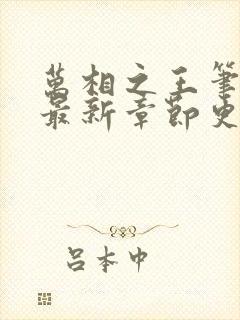 萬相之王筆
最新章節史
呂本中